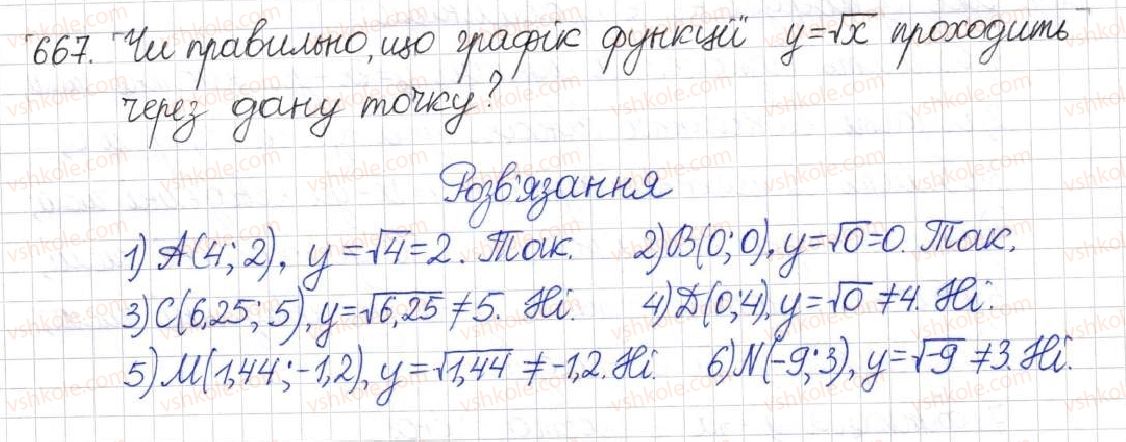 667. Чи правильно, що графік функції y=√x проходить
через дану точку?
Розв'язання
1) A(4; 2), y=√4=2. Так. 2) B(0; 0), y=√0=0. Так.
3) C(6,25; 5), y=√6,25≠5. Ні. 4) Д(0;4), y=√0≠4. Ні.
5) M(1,44; -1,2), y=√1,44≠-1,2. Ні. 6) N(-9; 3), y=√-9≠3. Ні.